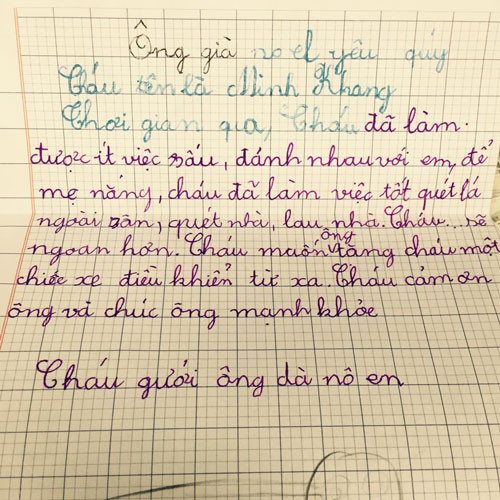 Ông già no el yêu quý
Cháu tên là Minh Khang
Thời gian qua, Cháu đã làm.
được ít việc sấu, đánh nhau với em, để
mẹ nắng, cháu đã làm việc tốt quét lá
ngoài sân, quét nhà, lau nhà. Cháu... sẽ
ngoan hơn. Cháu muốn ông tăng cháu một
chiếc xe điều khiển từ xa. Cháu cảm ơn
ông và chúc ông mạnh khỏe
Cháu gưởi ông dà nô en